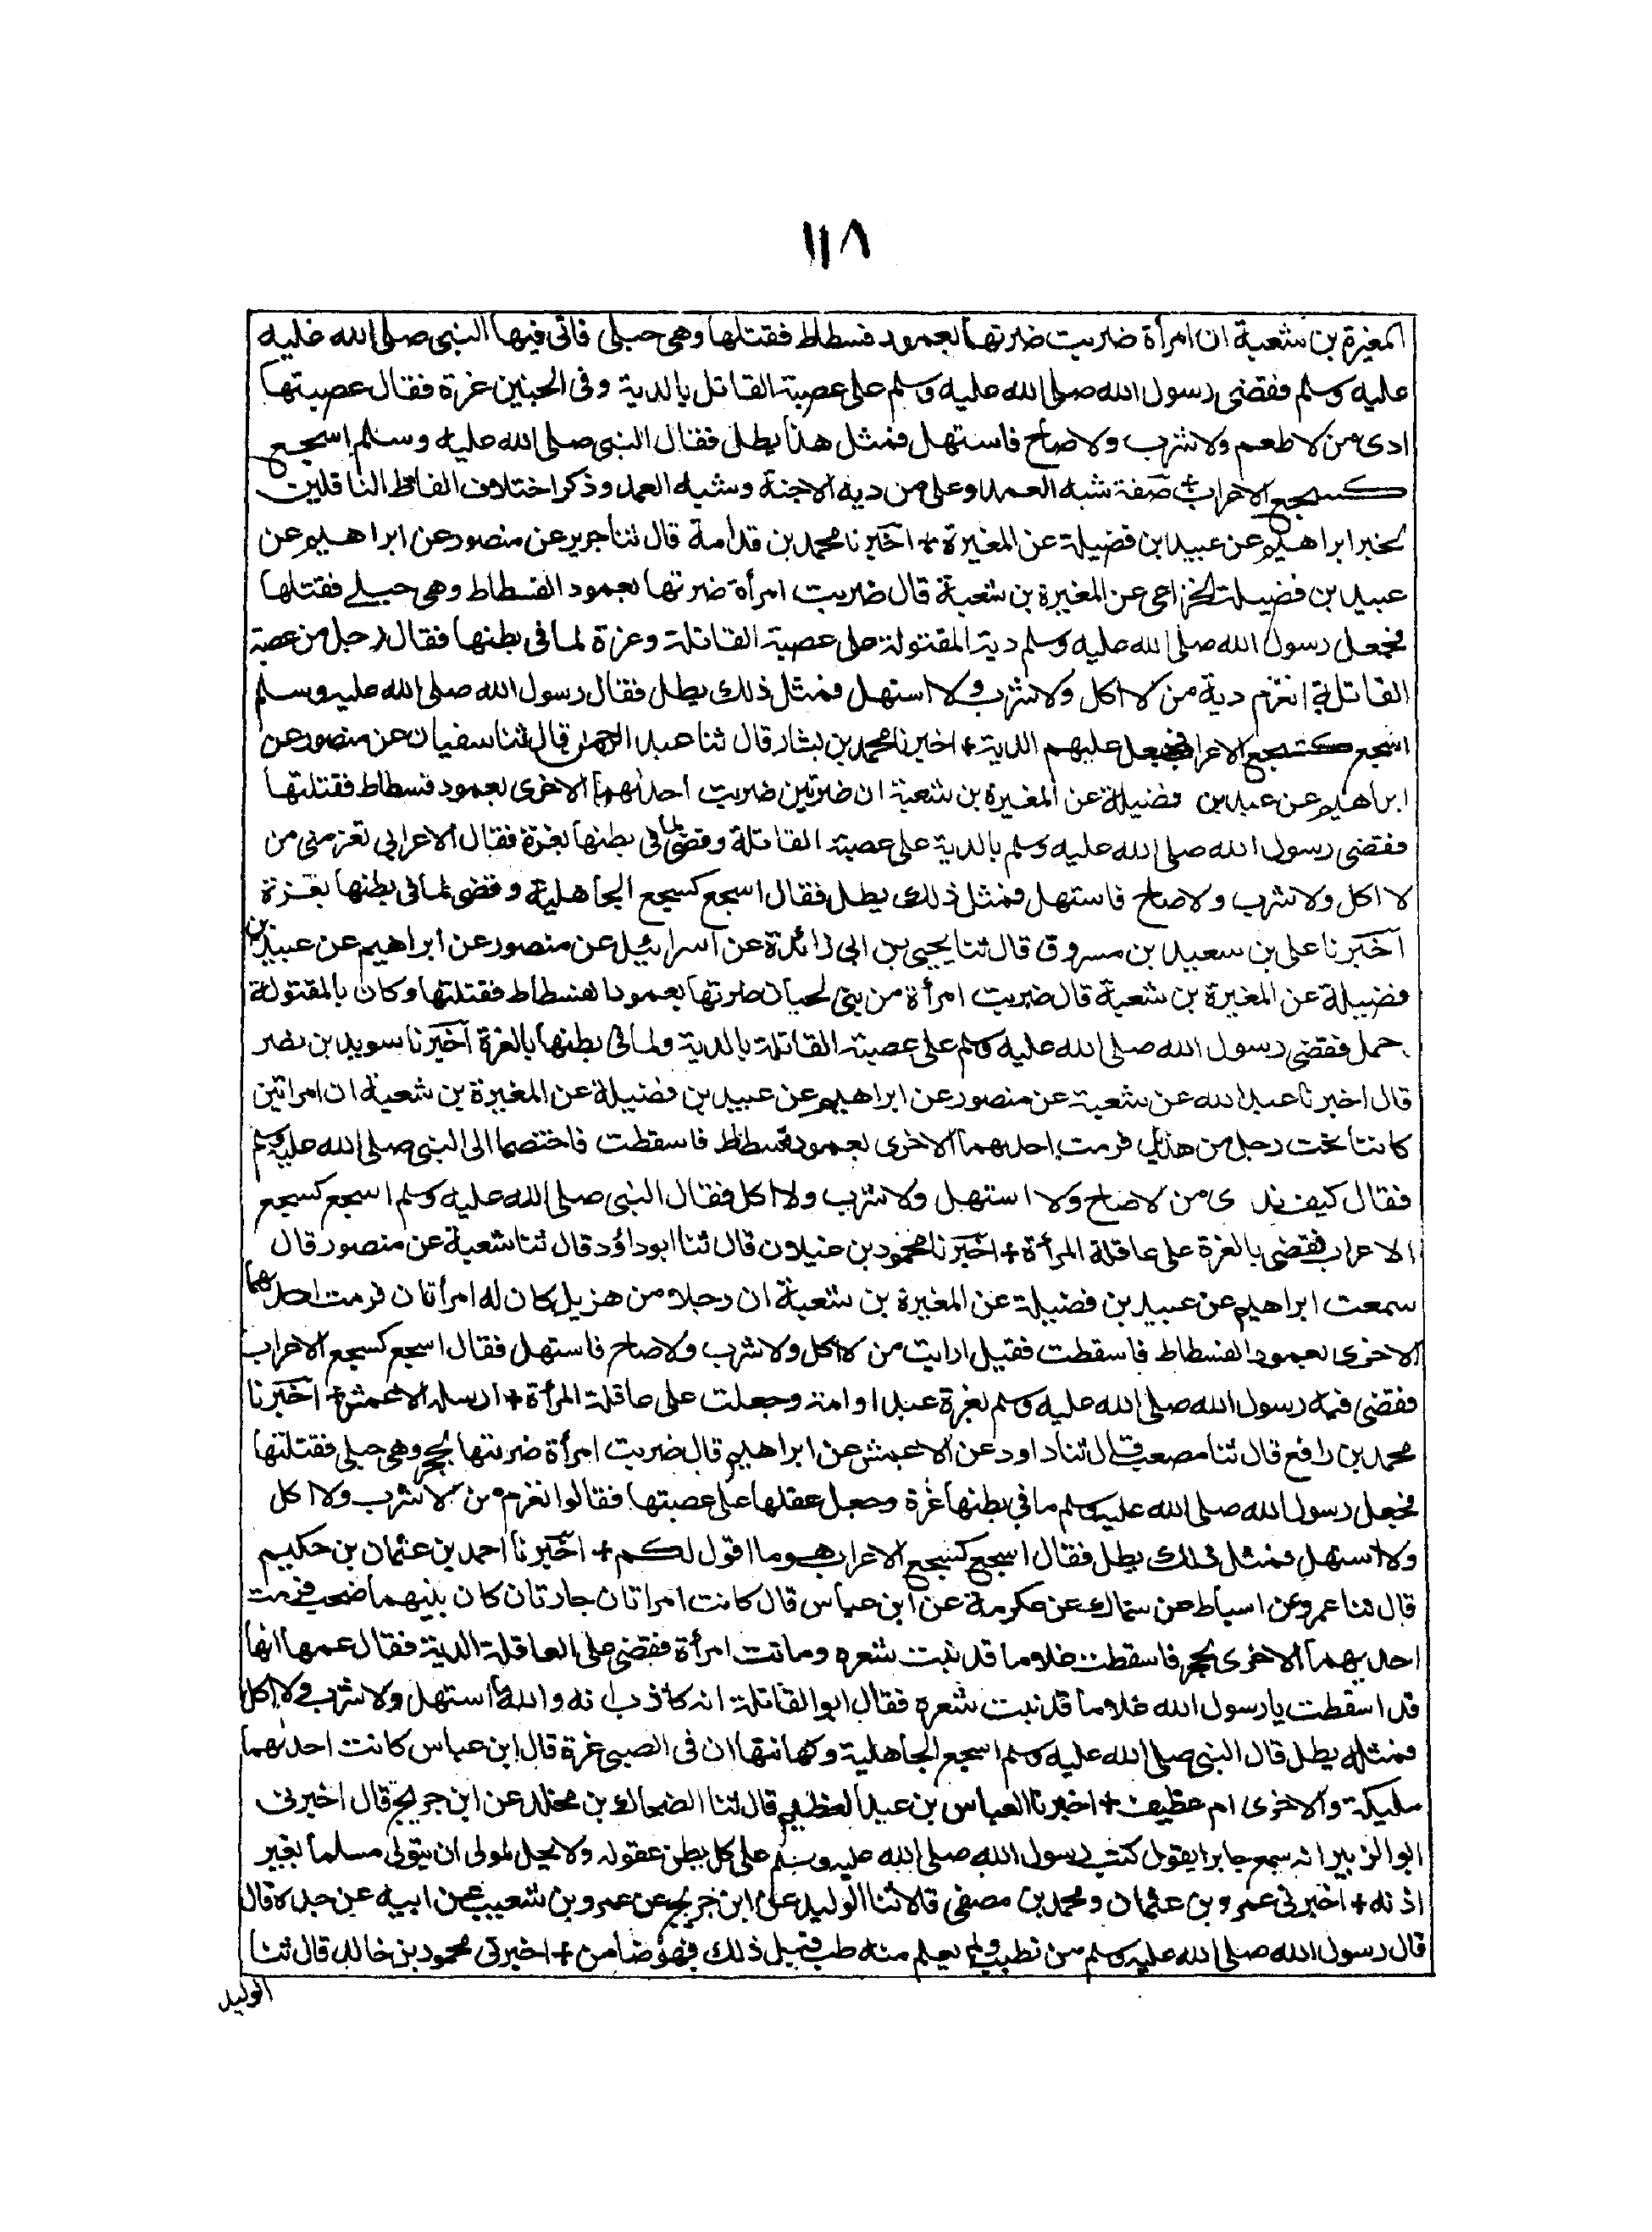 ١١٨
المغيرة بن شعبة ان امرأة ضربت ضرتها بعمود فسطاط فقتلها وهى حبلى فاتى فيها النبى صلى الله عليه
عليه وسلم فقضى رسول الله صلى الله عليه وسلم على عصبة القاتل بالدية وفى الجنين غرة فقال عصبتها
ادى من لا طعم ولا شرب ولا صاح فاستهل فمثل هذا يطل فقال النبى صلى الله عليه وسلم اسجع
كسجع الاعراب + صفة شبه العمد وعلى من دية الاجنة وشبه العمد وذكر اختلاف الفاظ الناقلين
لخبر ابراهيم عن عبيد بن فضيلة عن المغيرة + اخبرنا محمد بن قدامة قال ثنا جرير عن منصور عن ابراهيم عن
عبيد بن فضيلة الخزاعى عن المغيرة بن شعبة قال ضربت امرأة ضرتها بعمود الفسطاط وهى حبلى فقتلها
فجعل رسول الله صلى الله عليه وسلم دية المقتولة على عصبة القاتلة وغرة لما فى بطنها فقال رجل من عصبة
القاتلة انغرم دية من لا اكل ولا شرب ولا استهل فمثل ذلك يطل فقال رسول الله صلى الله عليه وسلم
اسجع كسجع الاعراب فجعل عليهم الدية + اخبرنا محمد بن بشار قال ثنا عبد الرحمن قال ثنا سفيان عن منصور عن
ابراهيم عن عبيد بن فضيلة عن المغيرة بن شعبة ان ضرتين ضربت احداهما الاخرى بعمود فسطاط فقتلتها
فقضى رسول الله صلى الله عليه وسلم بالدية على عصبة القاتلة وقضى لما فى بطنها بغرة فقال الاعرابى تغرمنى من
لا اكل ولا شرب ولا صاح فاستهل فمثل ذلك يطل فقال اسجع كسجع الجاهلية وقضى لما فى بطنها بغرة
اخبرنا على بن سعيد بن مسروق قال ثنا يحيى بن ابى زائدة عن اسرائيل عن منصور عن ابراهيم عن عبيد بن
فضيلة عن المغيرة بن شعبة قال ضربت امرأة من بنى لحيان ضرتها بعمود الفسطاط فقتلتها وكان بالمقتولة
حمل فقضى رسول الله صلى الله عليه وسلم على عصبة القاتلة بالدية ولما فى بطنها بالغرة اخبرنا سويد بن نصر
قال اخبرنا عبد الله عن شعبة عن منصور عن ابراهيم عن عبيد بن فضيلة عن المغيرة بن شعبة ان امراتين
كانتا تحت رجل من هذيل فرمت احدىهما الاخرى بعمود فسطاط فاسقطت فاختصما الى النبى صلى الله عليه وسلم
فقال كيف ند ى من لا صاح ولا استهل ولا شرب ولا اكل فقال النبى صلى الله عليه وسلم اسجع كسجع
الاعراب فقضى بالغرة على عاقلة المرأة + اخبرنا محمود بن غيلان قال ثنا ابو داؤد قال ثنا شعبة عن منصور قال
سمعت ابراهيم عن عبيد بن فضيلة عن المغيرة بن شعبة ان رجلا من هزيل كان له امرأتان فرمت احدىهما
الاخرى بعمود الفسطاط فاسقطت فقيل ارايت من لا اكل ولا شرب ولا صاح فاستهل فقال اسجع كسجع الاعراب
فقضى فيه رسول الله صلى الله عليه وسلم بغرة عبد او امة وجعلت على عاقلة المرأة + ارسله الاعمش + اخبرنا
محمد بن رافع قال ثنا مصعب قال ثنا داود عن الاعمش عن ابراهيم قال ضربت امرأة ضرتها بحجر وهى حبلى فقتلتها
فجعل رسول الله صلى الله عليه وسلم ما فى بطنها غرة وجعل عقلها على عصبتها فقالوا نغرم من لا شرب ولا اكل
ولا استهل فمثل ذلك يطل فقال اسجع كسجع الاعراب هو ما اقول لكم + اخبرنا احمد بن عثمان بن حكيم
قال ثنا عمرو عن اسباط عن سماك عن عكرمة عن ابن عباس قال كانت امراتان جارتان كان بينهما ضخب فرمت
احدىهما الاخرى بحجر فاسقطت غلاما قد نبت شعره وماتت امرأة فقضى على العاقلة الدية فقال عمها انها
قد اسقطت يا رسول الله غلاما قد نبت شعره فقال ابو القاتلة انه كاذب انه والله ما استهل ولا شرب ولا اكل
فمثله يطل قال النبى صلى الله عليه وسلم اسجع الجاهلية وكهانتها ان فى الصبى غرة قال ابن عباس كانت احداهما
مليكة والاخرى ام غطيف + اخبرنا العباس بن عبد العظيم قال ثنا الضحاك بن مخلد عن ابن جريج قال اخبرنى
ابو الزبير انه سمع جابرا يقول كتب رسول الله صلى الله عليه وسلم على كل بطن عقوله ولا يحل لمولى ان يتولى مسلما بغير
اذنه + اخبرنى عمرو بن عثمان ومحمد بن مصفى قالا ثنا الوليد عن ابن جريج عن عمرو بن شعيب عن ابيه عن جده قال
قال رسول الله صلى الله عليه وسلم من تطبب ولم يعلم منه طب قبل ذلك فهو ضامن + اخبرنى محمود بن خالد قال ثنا
الوليد